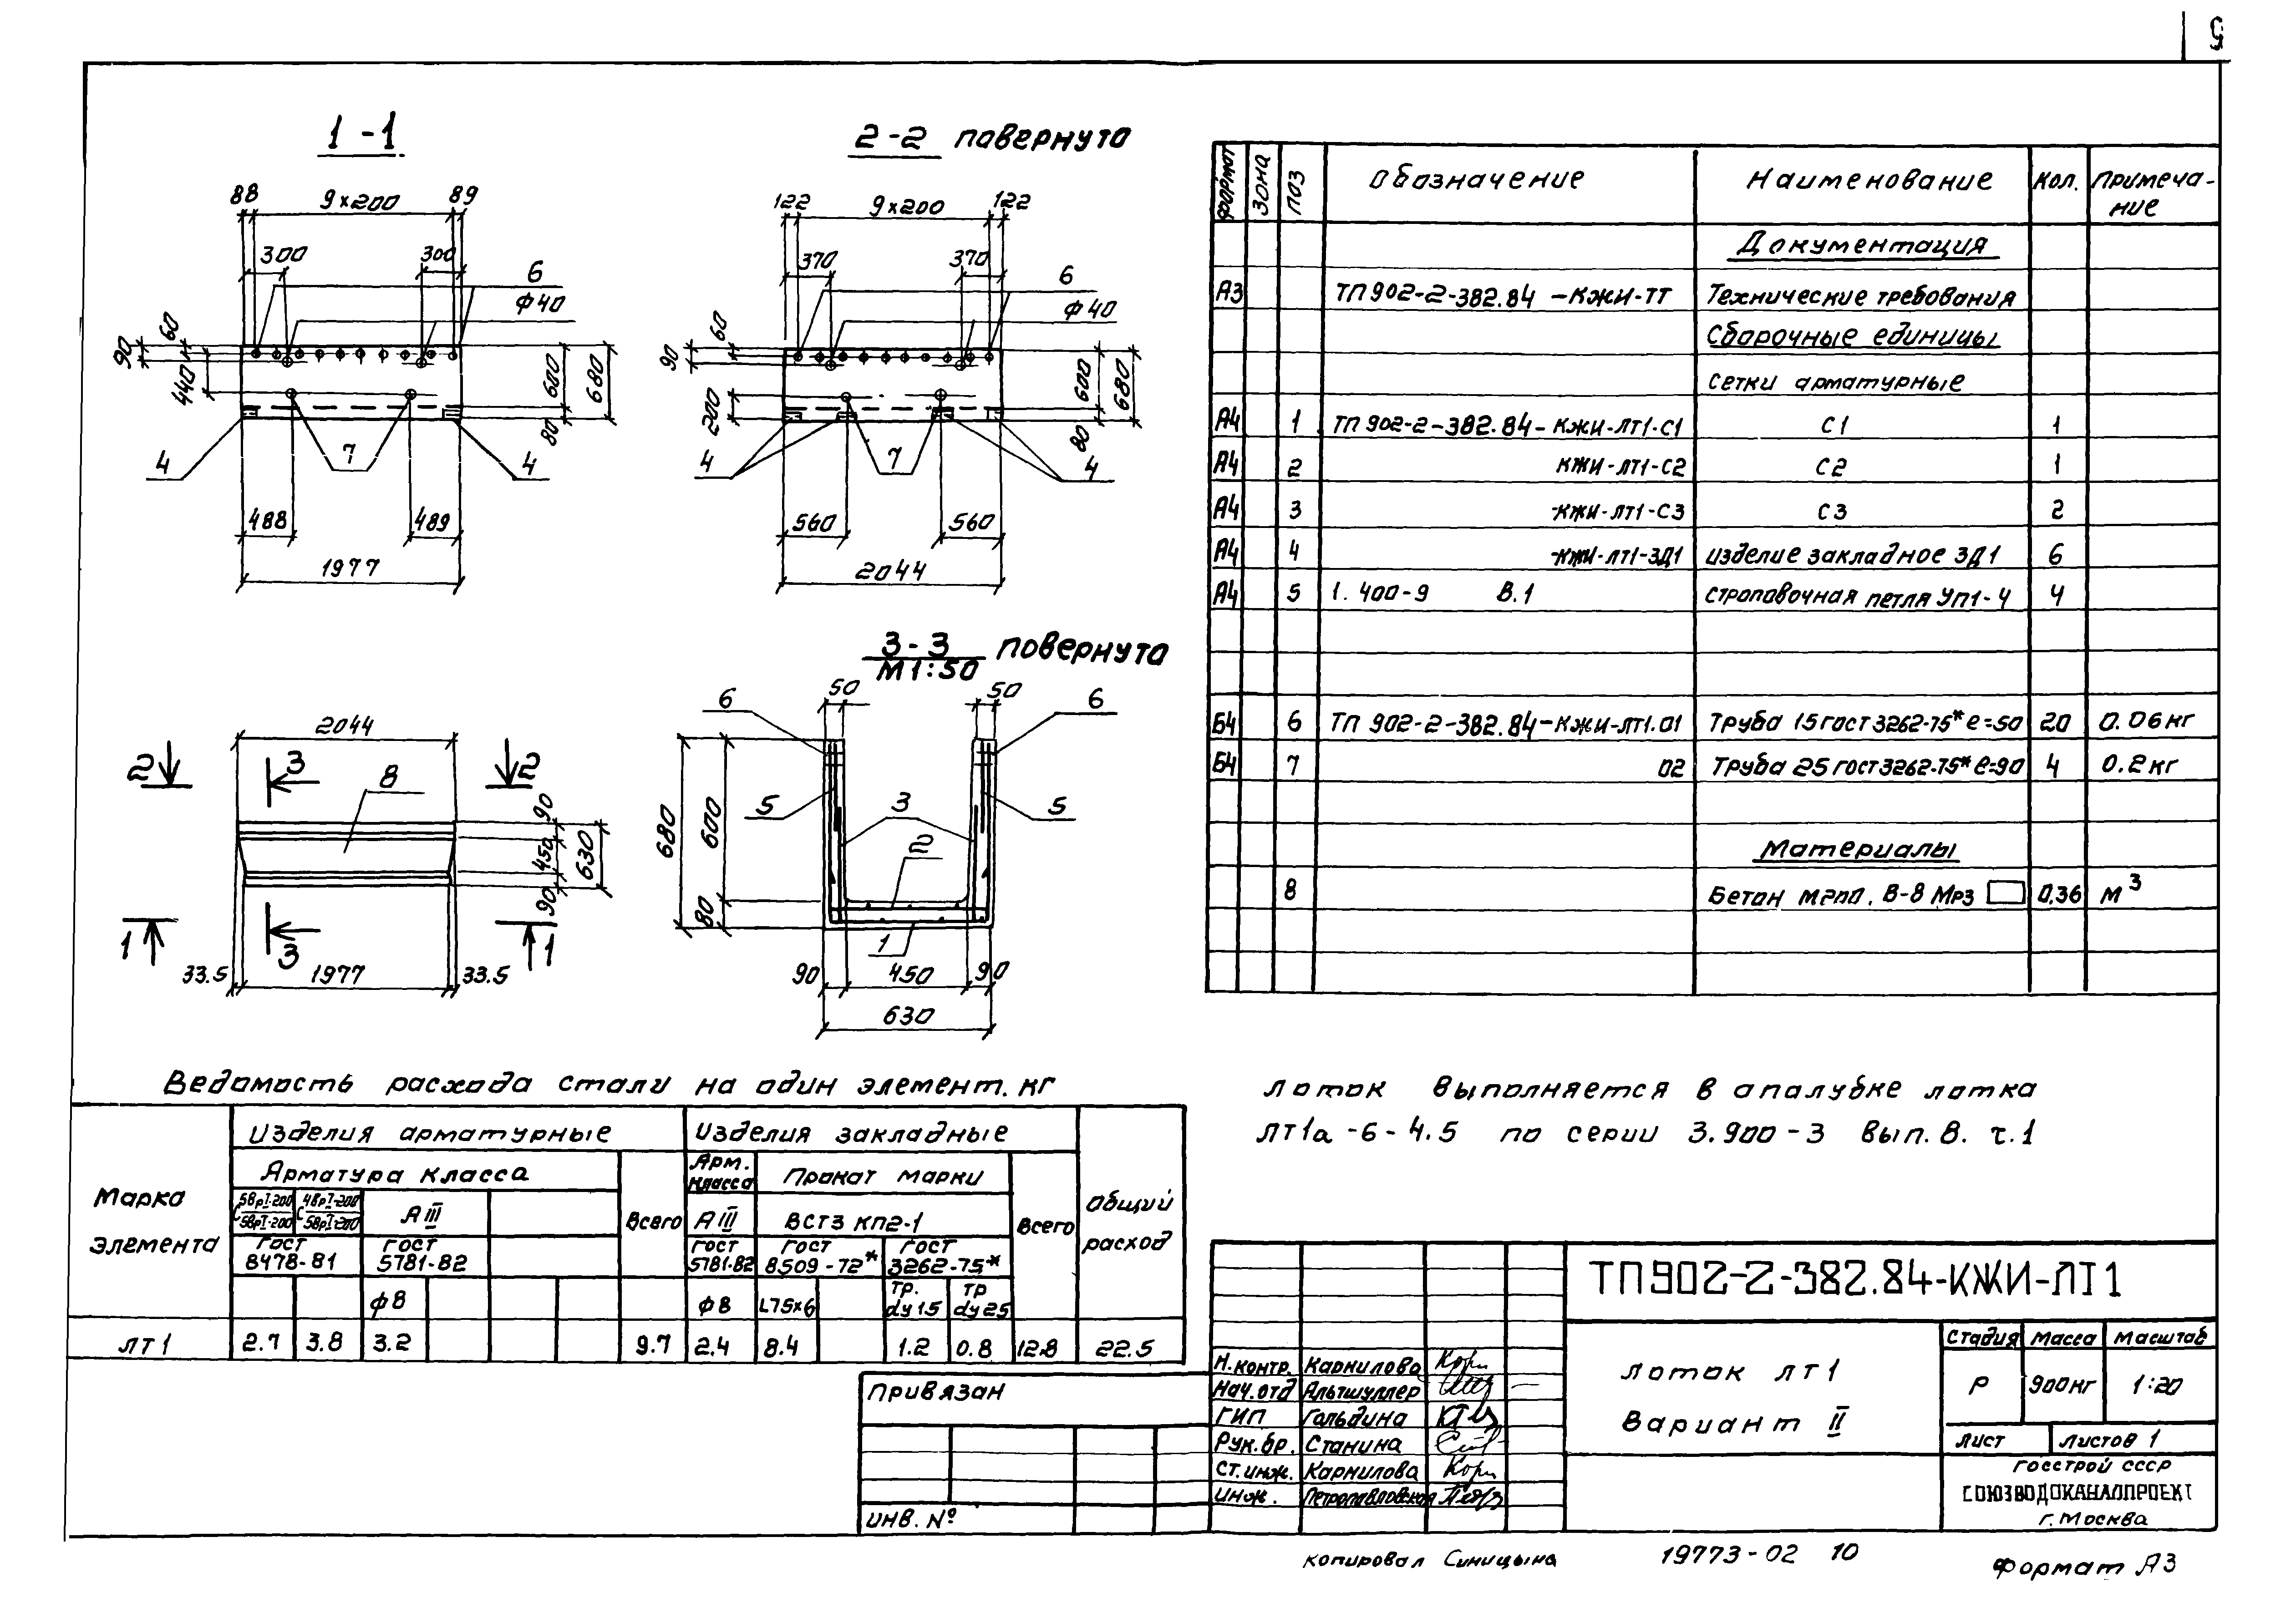 5
1-1
88 9×200 89
300 300
6
ф40
60
90
440
600
680
80
4 7 4
488 489
1977
2-2 повернута
122 9×200 122
370 370
6
ф40
60
90
200
600
680
80
4 7 4
560 560
2044
3-3 повернута
М1:50
50 50
6 6
5 3 5
2
1
680
600
80
90 450 90
630
2044
2 3 2
8
90
450
630
90
1 3 1
33.5 1977 33.5
Формат Зона Поз Обозначение Наименование Кол. Примеча-
ние
Документация
А3 ТП902-2-382.84-КЖИ-ТТ Технические требования
Сборочные единицы
Сетки арматурные
А4 1 ТП902-2-382.84-КЖИ-ЛТ1-С1 С1 1
А4 2 КЖИ-ЛТ1-С2 С2 1
А4 3 -КЖИ-ЛТ1-С3 С3 2
А4 4 -КЖИ-ЛТ1-ЗД1 Изделие закладное ЗД1 6
А4 5 1.400-9 В.1 Строповочная петля УП1-4 4
Б4 6 ТП 902-2-382.84-КЖИ-ЛТ1.01 Труба 15 ГОСТ 3262-75* е=50 20 0.06кг
Б4 7 02 Труба 25 ГОСТ 3262-75* е=90 4 0.2кг
Материалы
8 Бетон М200. В-8 Мрз 0.36 м3
Ведомость расхода стали на один элемент. кг
Марка
элемента
Изделия арматурные Изделия закладные
Арматура класса
Арм.
класса
Прокат марки
С 5ВрI-200/5ВрI-200 С 4ВрI-200/5ВрI-200 АIII Всего АIII ВСт3 кп2-1 Всего
Общий
расход
ГОСТ
8478-81
ГОСТ
5781-82
ГОСТ
5781-82
ГОСТ
8509-72*
ГОСТ
3262-75*
ф8 ф8 L75×6
Тр.
dу15
Тр
dу25
ЛТ1 2.7 3.8 3.2 9.7 2.4 8.4 1.2 0.8 12.8 22.5
Лоток выполняется в опалубке лотка
ЛТ1а-6-4.5 по серии 3.900-3 вып. 8. ч.1
Привязан
Инв. №
Н.контр. Карнилова
Нач.отд Альтшуллер
ГИП Гольдина
Рук.бр. Станина
Ст.инж. Карнилова
Инж. Петропавловская
ТП902-2-382.84-КЖИ-ЛТ1
Лоток ЛТ1
Вариант II
Стадия Масса Масштаб
Р 900кг 1:20
Лист Листов 1
Госстрой СССР
СОЮЗВОДОКАНАЛПРОЕКТ
г. Москва
Копировал Синицына 19773-02 10 Формат А3